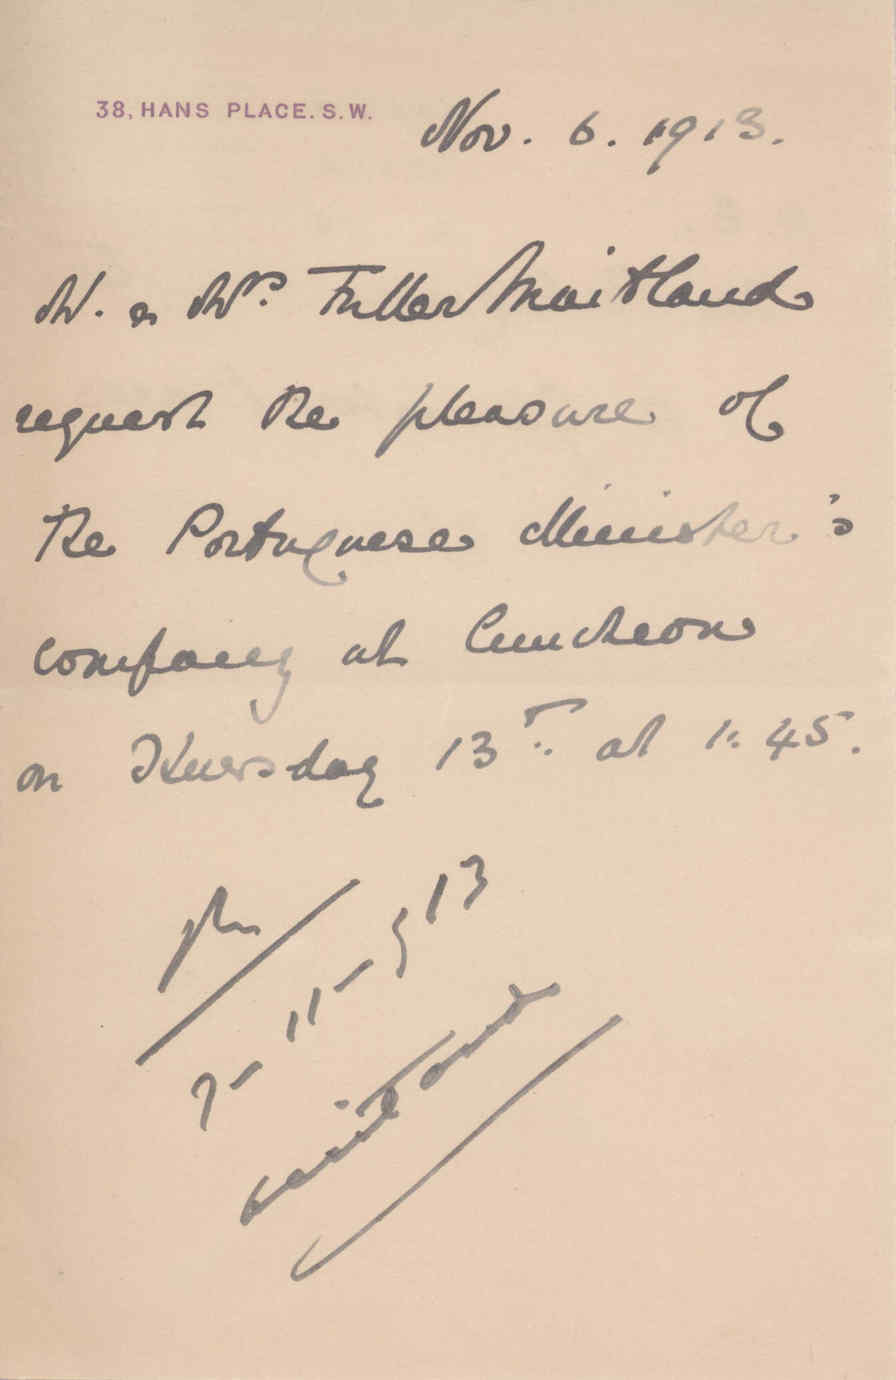 38, HANS PLACE. S.W.
Nov. 6. 1913.
W. & Mrs. Fuller Maitland
request the pleasure of
the Portuguese Minister's
company at luncheon
on Thursday 13th at 1:45.
7-11-913